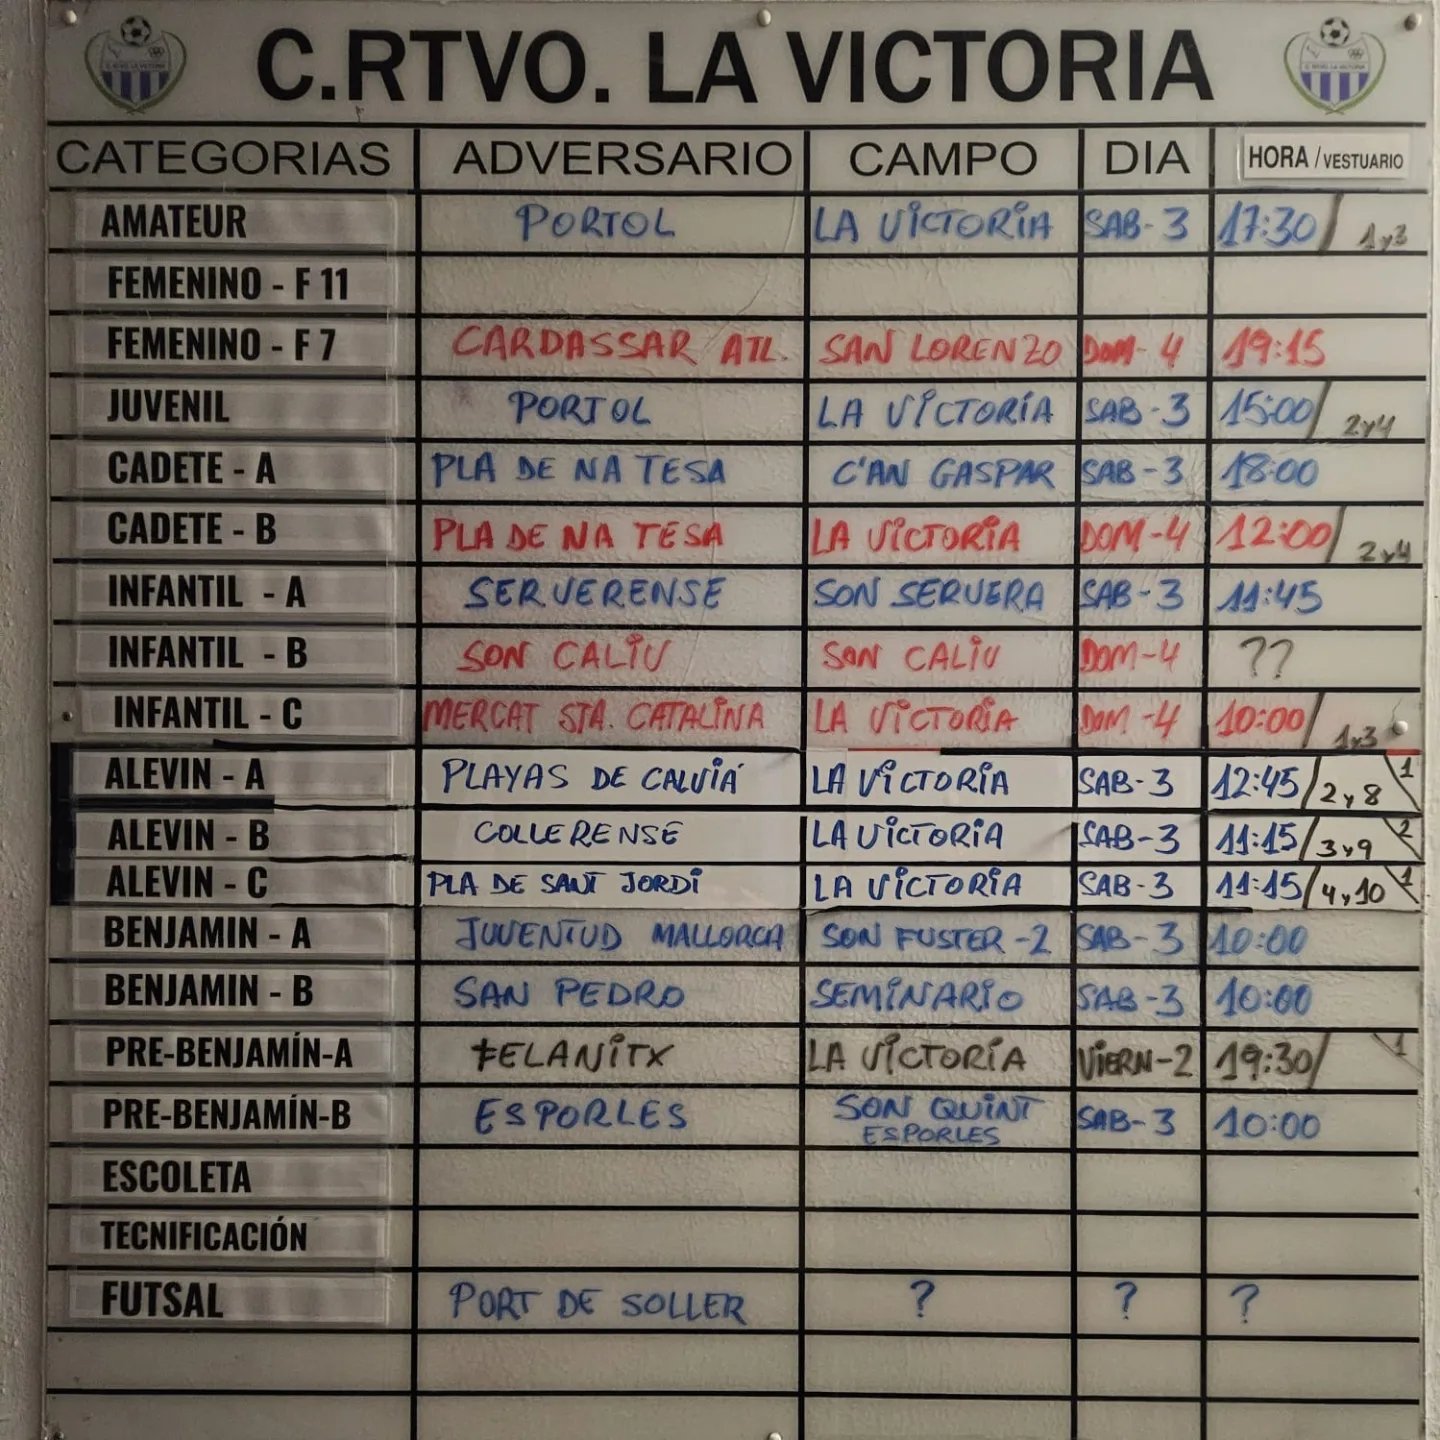 C.RTVO. LA VICTORIA
CATEGORIAS ADVERSARIO CAMPO DIA HORA / VESTUARIO
AMATEUR PORTOL LA VICTORIA SAB-3 17:30/ 1y3
FEMENINO - F 11
FEMENINO - F 7 CARDASSAR ATL. SAN LORENZO DOM-4 19:15
JUVENIL PORTOL LA VICTORIA SAB-3 15:00/ 2y4
CADETE - A PLA DE NA TESA C'AN GASPAR SAB-3 18:00
CADETE - B PLA DE NA TESA LA VICTORIA DOM-4 12:00/ 2y4
INFANTIL - A SERVERENSE SON SERVERA SAB-3 11:45
INFANTIL - B SON CALIU SON CALIU DOM-4 ??
INFANTIL - C MERCAT STA. CATALINA LA VICTORIA DOM-4 10:00/ 1y3
ALEVIN - A PLAYAS DE CALVIÁ LA VICTORIA SAB-3 12:45/2y8 1
ALEVIN - B COLLERENSE LA VICTORIA SAB-3 11:15/3y9 2
ALEVIN - C PLA DE SANT JORDI LA VICTORIA SAB-3 11:15/4y10 1
BENJAMIN - A JUVENTUD MALLORCA SON FUSTER-2 SAB-3 10:00
BENJAMIN - B SAN PEDRO SEMINARIO SAB-3 10:00
PRE-BENJAMÍN-A FELANITX LA VICTORIA VIERN-2 19:30/ 1
PRE-BENJAMÍN-B ESPORLES SON QUINT SAB-3 10:00
ESPORLES
ESCOLETA
TECNIFICACIÓN
FUTSAL PORT DE SOLLER ? ? ?